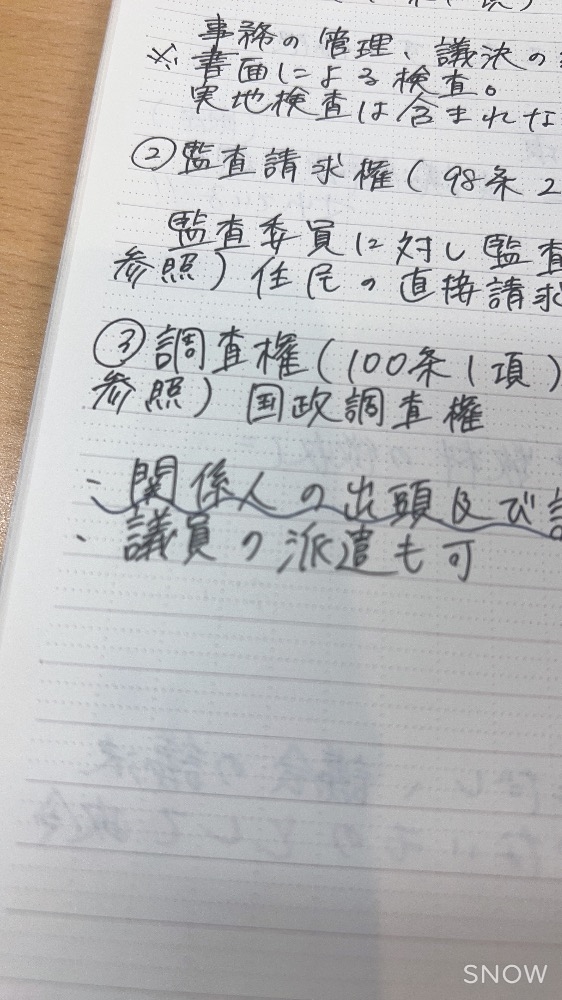 事務の管理、議決の
※書面による検査。
実地検査は含まれな
②監査請求権(98条2
監査委員に対し監査
参照)住民の直接請求
③調査権(100条1項)
参照)国政調査権
・関係人の出頭及び
・議員の派遣も可
SNOW